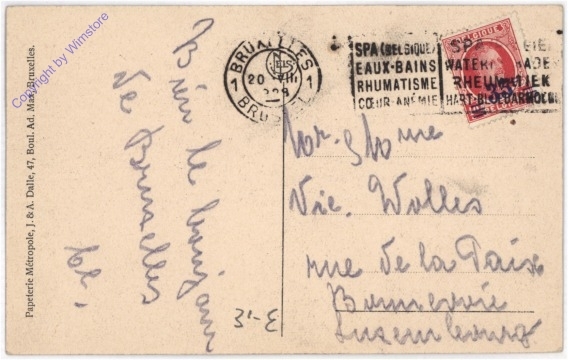 Copyright by Wimstore
Papeterie Métropole, J. & A. Dalle, 47, Boul. Ad. Max, Bruxelles.
Bien le bonjour
de Bruxelles
3'-E
1 BRUXELLES 1
20 VIII
BRUSSEL
SPA (BELGIQUE)
EAUX-BAINS
RHUMATISME
CŒUR-ANÉMIE
SPA
WATER BADE
RHEUMATIEK
HART-BLOEDARMOEDE
BELGIQUE
Vic. Wolles
rue de la Paix
Bonnevoie
Luxembourg